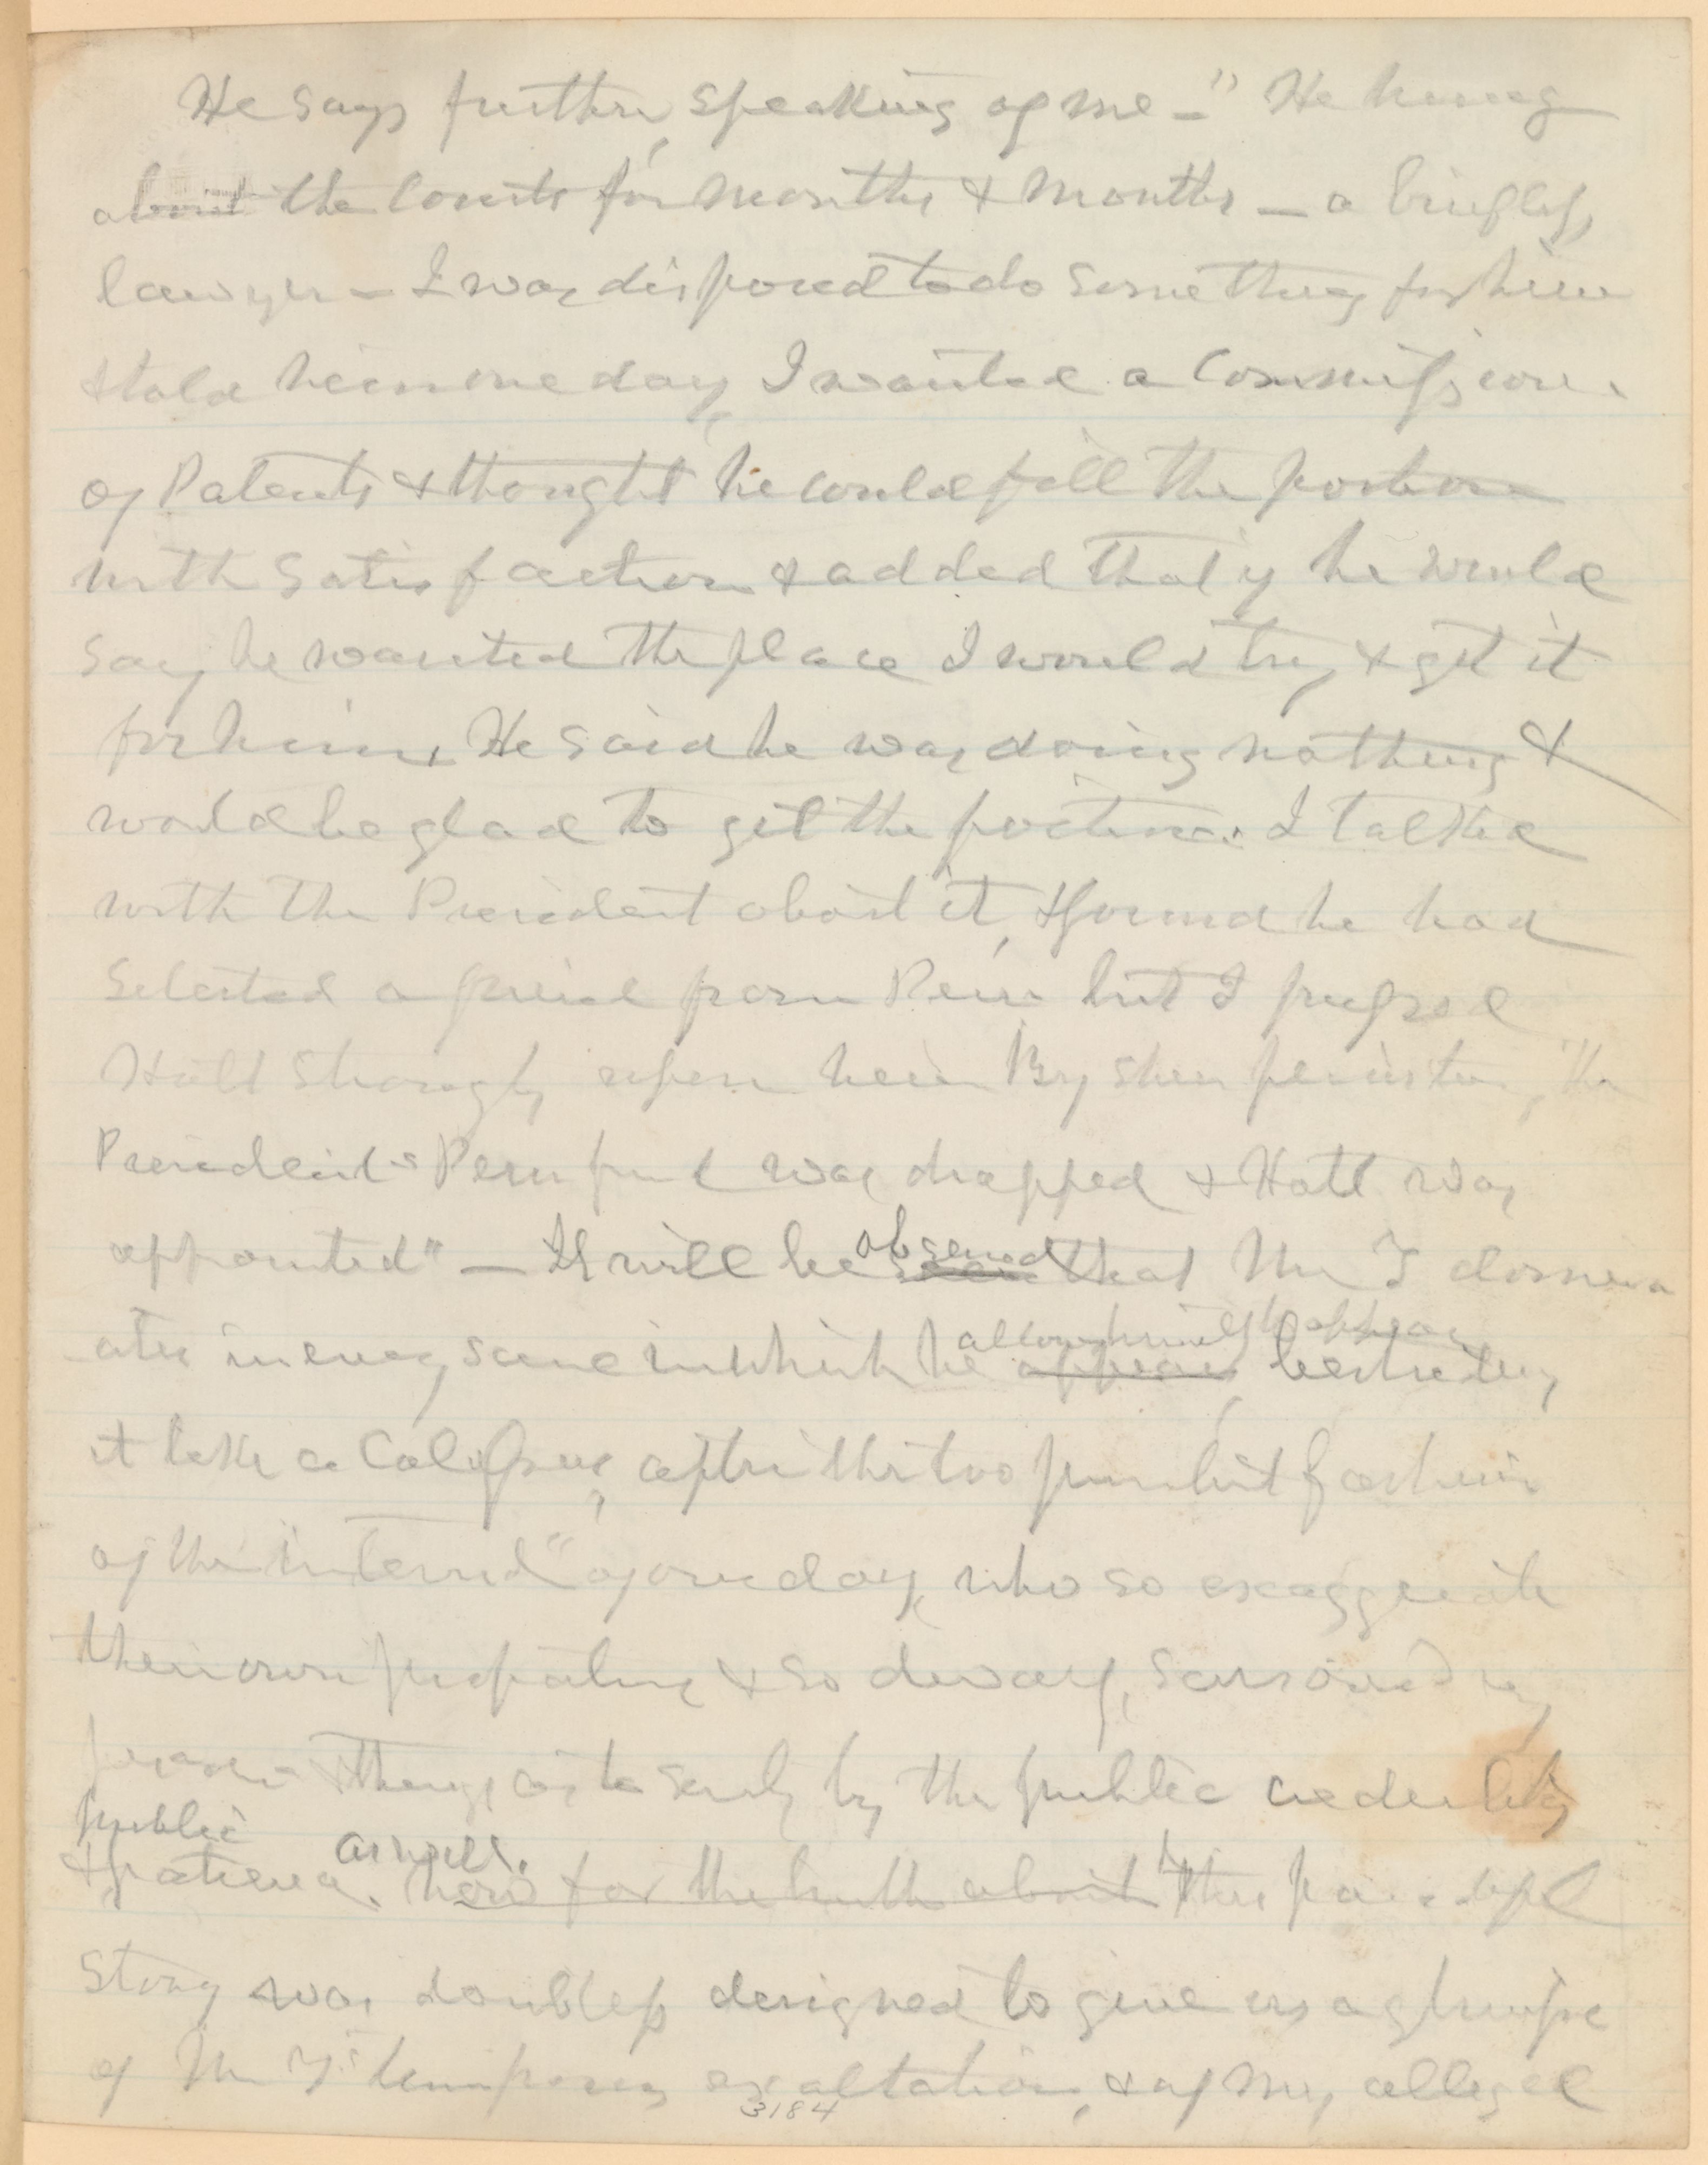 He says further, speaking of me — "He hung
about the Courts for months & months — a briefless
lawyer — I was disposed to do something for him
& told him one day, I wanted a Commissioner
of Patents & thought he could fill the position
with satisfaction & added that if he would
say he wanted the place I would try & get it
for him. He said he was doing nothing &
would be glad to get the position. I talked
with the President about it, & found he had
selected a friend from Penn but I pressed
Holt strongly upon him By sheer persistence, the
President's Penn friend was dropped & Holt was
appointed" — It will be observed that Mr T domin
ates in every scene in which he allows himself to appear bestriding
it like a Colossus, after the too prevalent fashion
of the "interviewed" of our day, who so exaggerate
their own proportions & so dwarf, surrounding
persons & things, as to sorely try the public credulity
& public patience as well. now for the truth about it This paragraph
story was doubtless designed to give us a glimpse
of Mr T's temporary exaltation, & of my alleged
3184